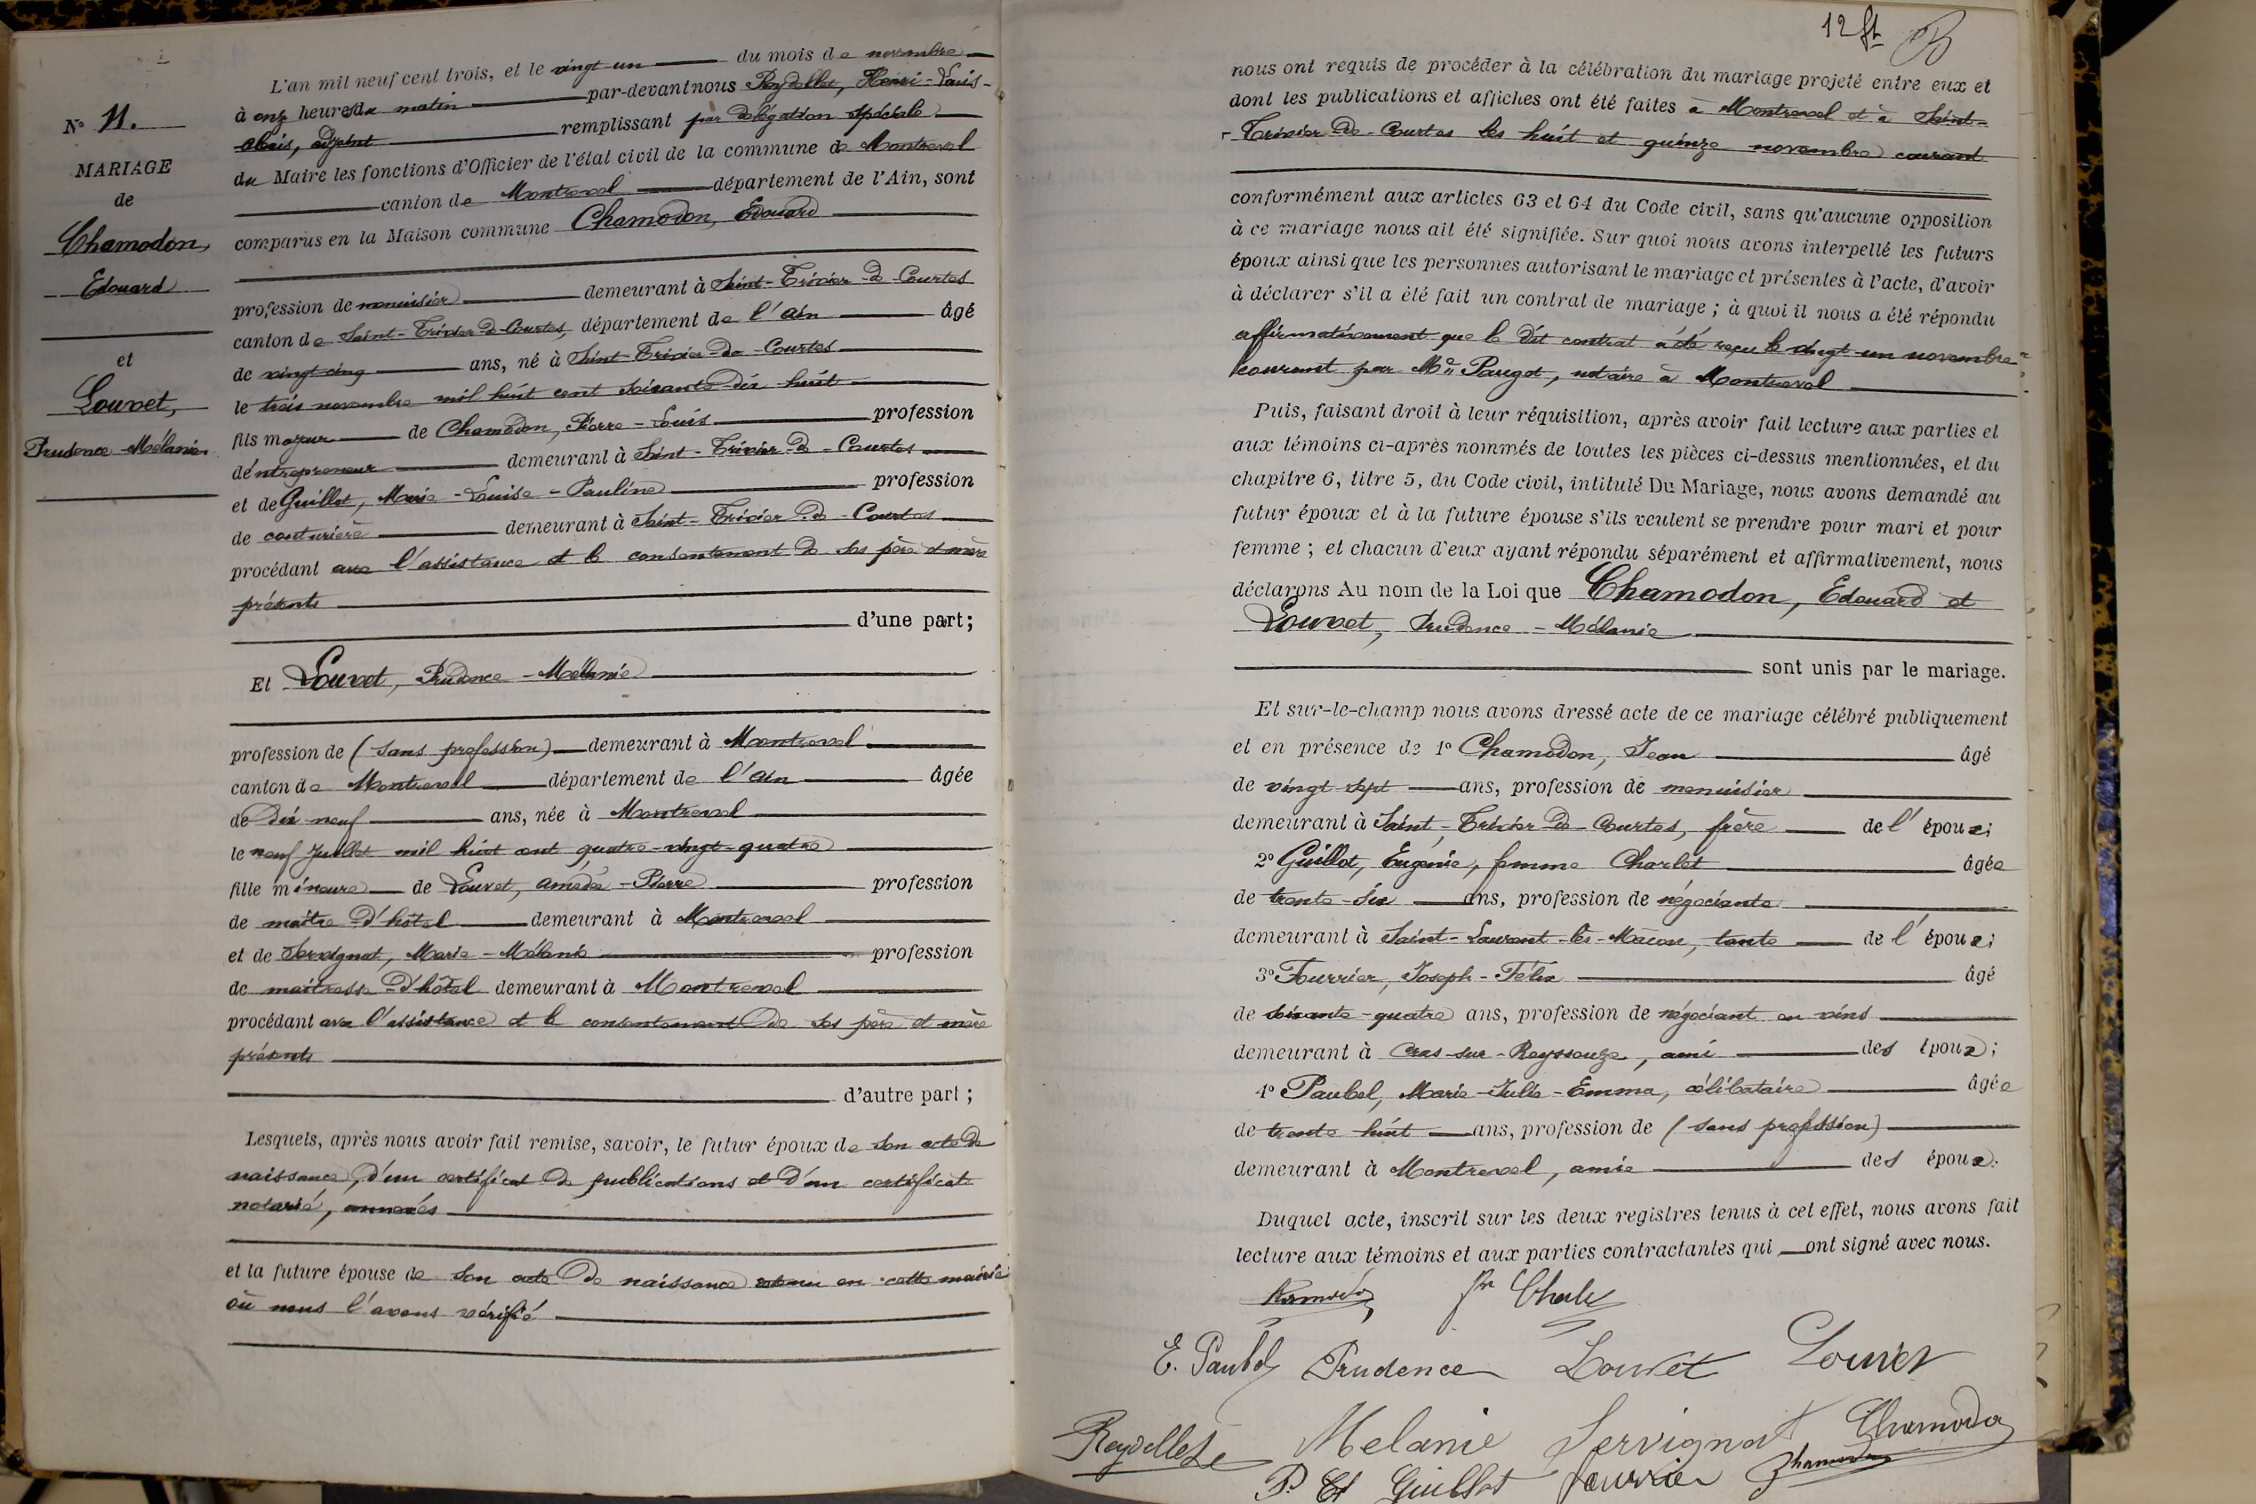 L'an mil neuf cent trois, et le vingt-un du mois de novembre
à onz heures du matin par-devant nous Reydellet, Henri-Louis-
Alexis, adjoint remplissant par délégation spéciale
du Maire les fonctions d'Officier de l'état civil de la commune de Montrevel
canton de Montrevel département de l'Ain, sont
comparus en la Maison commune Chamodon, Edouard
N° 11.
MARIAGE
de
Chamodon,
Edouard
et
Louvet,
Prudence-Mélanie
profession de menuisier demeurant à Saint-Trivier-de-Courtes
canton de Saint-Trivier-de-Courtes, département de l'Ain âgé
de vingt cinq ans, né à Saint-Trivier-de-Courtes
le trois novembre mil huit cent soixante dix huit
fils majeur de Chamodon, Pierre-Louis profession
d'entrepreneur demeurant à Saint-Trivier-de-Courtes
et de Guillot, Marie-Louise-Pauline profession
de couturière demeurant à Saint-Trivier-de-Courtes
procédant avec l'assistance et le consentement de ses père et mère
présents
d'une part;
Et Louvet, Prudence-Mélanie
profession de (sans profession) demeurant à Montrevel
canton de Montrevel département de l'Ain âgée
de dix neuf ans, née à Montrevel
le neuf Juillet mil huit cent quatre-vingt-quatre
fille mineure de Louvet, Amédée-Pierre profession
de maître d'hôtel demeurant à Montrevel
et de Servignat, Marie-Mélanie profession
de maîtresse d'hôtel demeurant à Montrevel
procédant avec l'assistance et le consentement de ses père et mère
présents
d'autre part;
Lesquels, après nous avoir fait remise, savoir, le futur époux de son acte de
naissance, d'un certificat de publications et d'un certificat
notarié, annexés
et la future épouse de son acte de naissance retenu en cette mairie
où nous l'avons vérifié
12 ft
nous ont requis de procéder à la célébration du mariage projeté entre eux et
dont les publications et affiches ont été faites à Montrevel et à Saint-
Trivier-de-Courtes les huit et quinze novembre courant
conformément aux articles 63 et 64 du Code civil, sans qu'aucune opposition
à ce mariage nous ait été signifiée. Sur quoi nous avons interpellé les futurs
époux ainsi que les personnes autorisant le mariage et présentes à l'acte, d'avoir
à déclarer s'il a été fait un contrat de mariage ; à quoi il nous a été répondu
affirmativement que le dit contrat a été reçu le vingt-un novembre
courant par Me Pauget, notaire à Montrevel
Puis, faisant droit à leur réquisition, après avoir fait lecture aux parties et
aux témoins ci-après nommés de toutes les pièces ci-dessus mentionnées, et du
chapitre 6, titre 5, du Code civil, intitulé Du Mariage, nous avons demandé au
futur époux et à la future épouse s'ils veulent se prendre pour mari et pour
femme ; et chacun d'eux ayant répondu séparément et affirmativement, nous
déclarons Au nom de la Loi que Chamodon, Edouard et
Louvet, Prudence-Mélanie
sont unis par le mariage.
Et sur-le-champ nous avons dressé acte de ce mariage célébré publiquement
et en présence de 1° Chamodon, Jean âgé
de vingt-sept ans, profession de menuisier
demeurant à Saint-Trivier-de-Courtes, frère de l'époux;
2° Guillot, Eugénie, femme Charlet âgée
de trente-six ans, profession de négociante
demeurant à Saint-Laurent-lès-Mâcon, tante de l'époux;
3° Fourrier, Joseph-Félix âgé
de soixante-quatre ans, profession de négociant en vins
demeurant à Cras-sur-Reyssouze, ami des époux;
4° Paubel, Marie-Julie-Emma, célibataire âgée
de trente huit ans, profession de (sans profession)
demeurant à Montrevel, amie des époux.
Duquel acte, inscrit sur les deux registres tenus à cet effet, nous avons fait
lecture aux témoins et aux parties contractantes qui ont signé avec nous.
E. Paubel Prudence Louvet Louvet
Reydellet Melanie Servignat Chamodon
P. Guillot Fourrier Chamodon